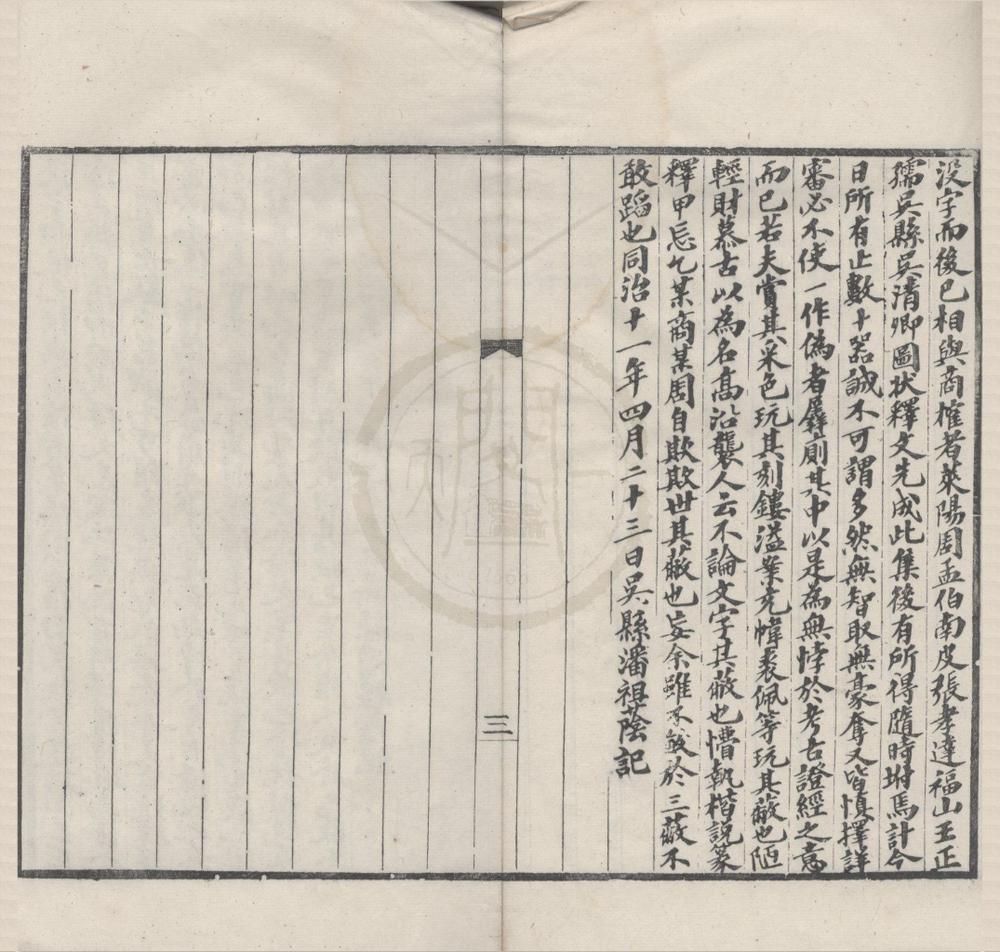 沒字而後已相與商榷者萊陽周孟伯南皮張孝達福山王正
孺吳縣吳清卿圖狀釋文先成此集後有所得隨時坿焉計今
日所有止數十器誠不可謂多然無智取無豪奪又皆慎擇詳
審必不使一作偽者羼廁其中以是為無悖於考古證經之意
而已若夫賞其采色玩其刻鏤溢案充幃裘佩等玩其蔽也陋
輕財慕古以為名高沿襲人云不論文字其蔽也懵執楷說篆
釋甲忘乙某商某周自欺欺世其蔽也妄余雖不敏於三蔽不
敢蹈也同治十一年四月二十三日吳縣潘祖蔭記
三